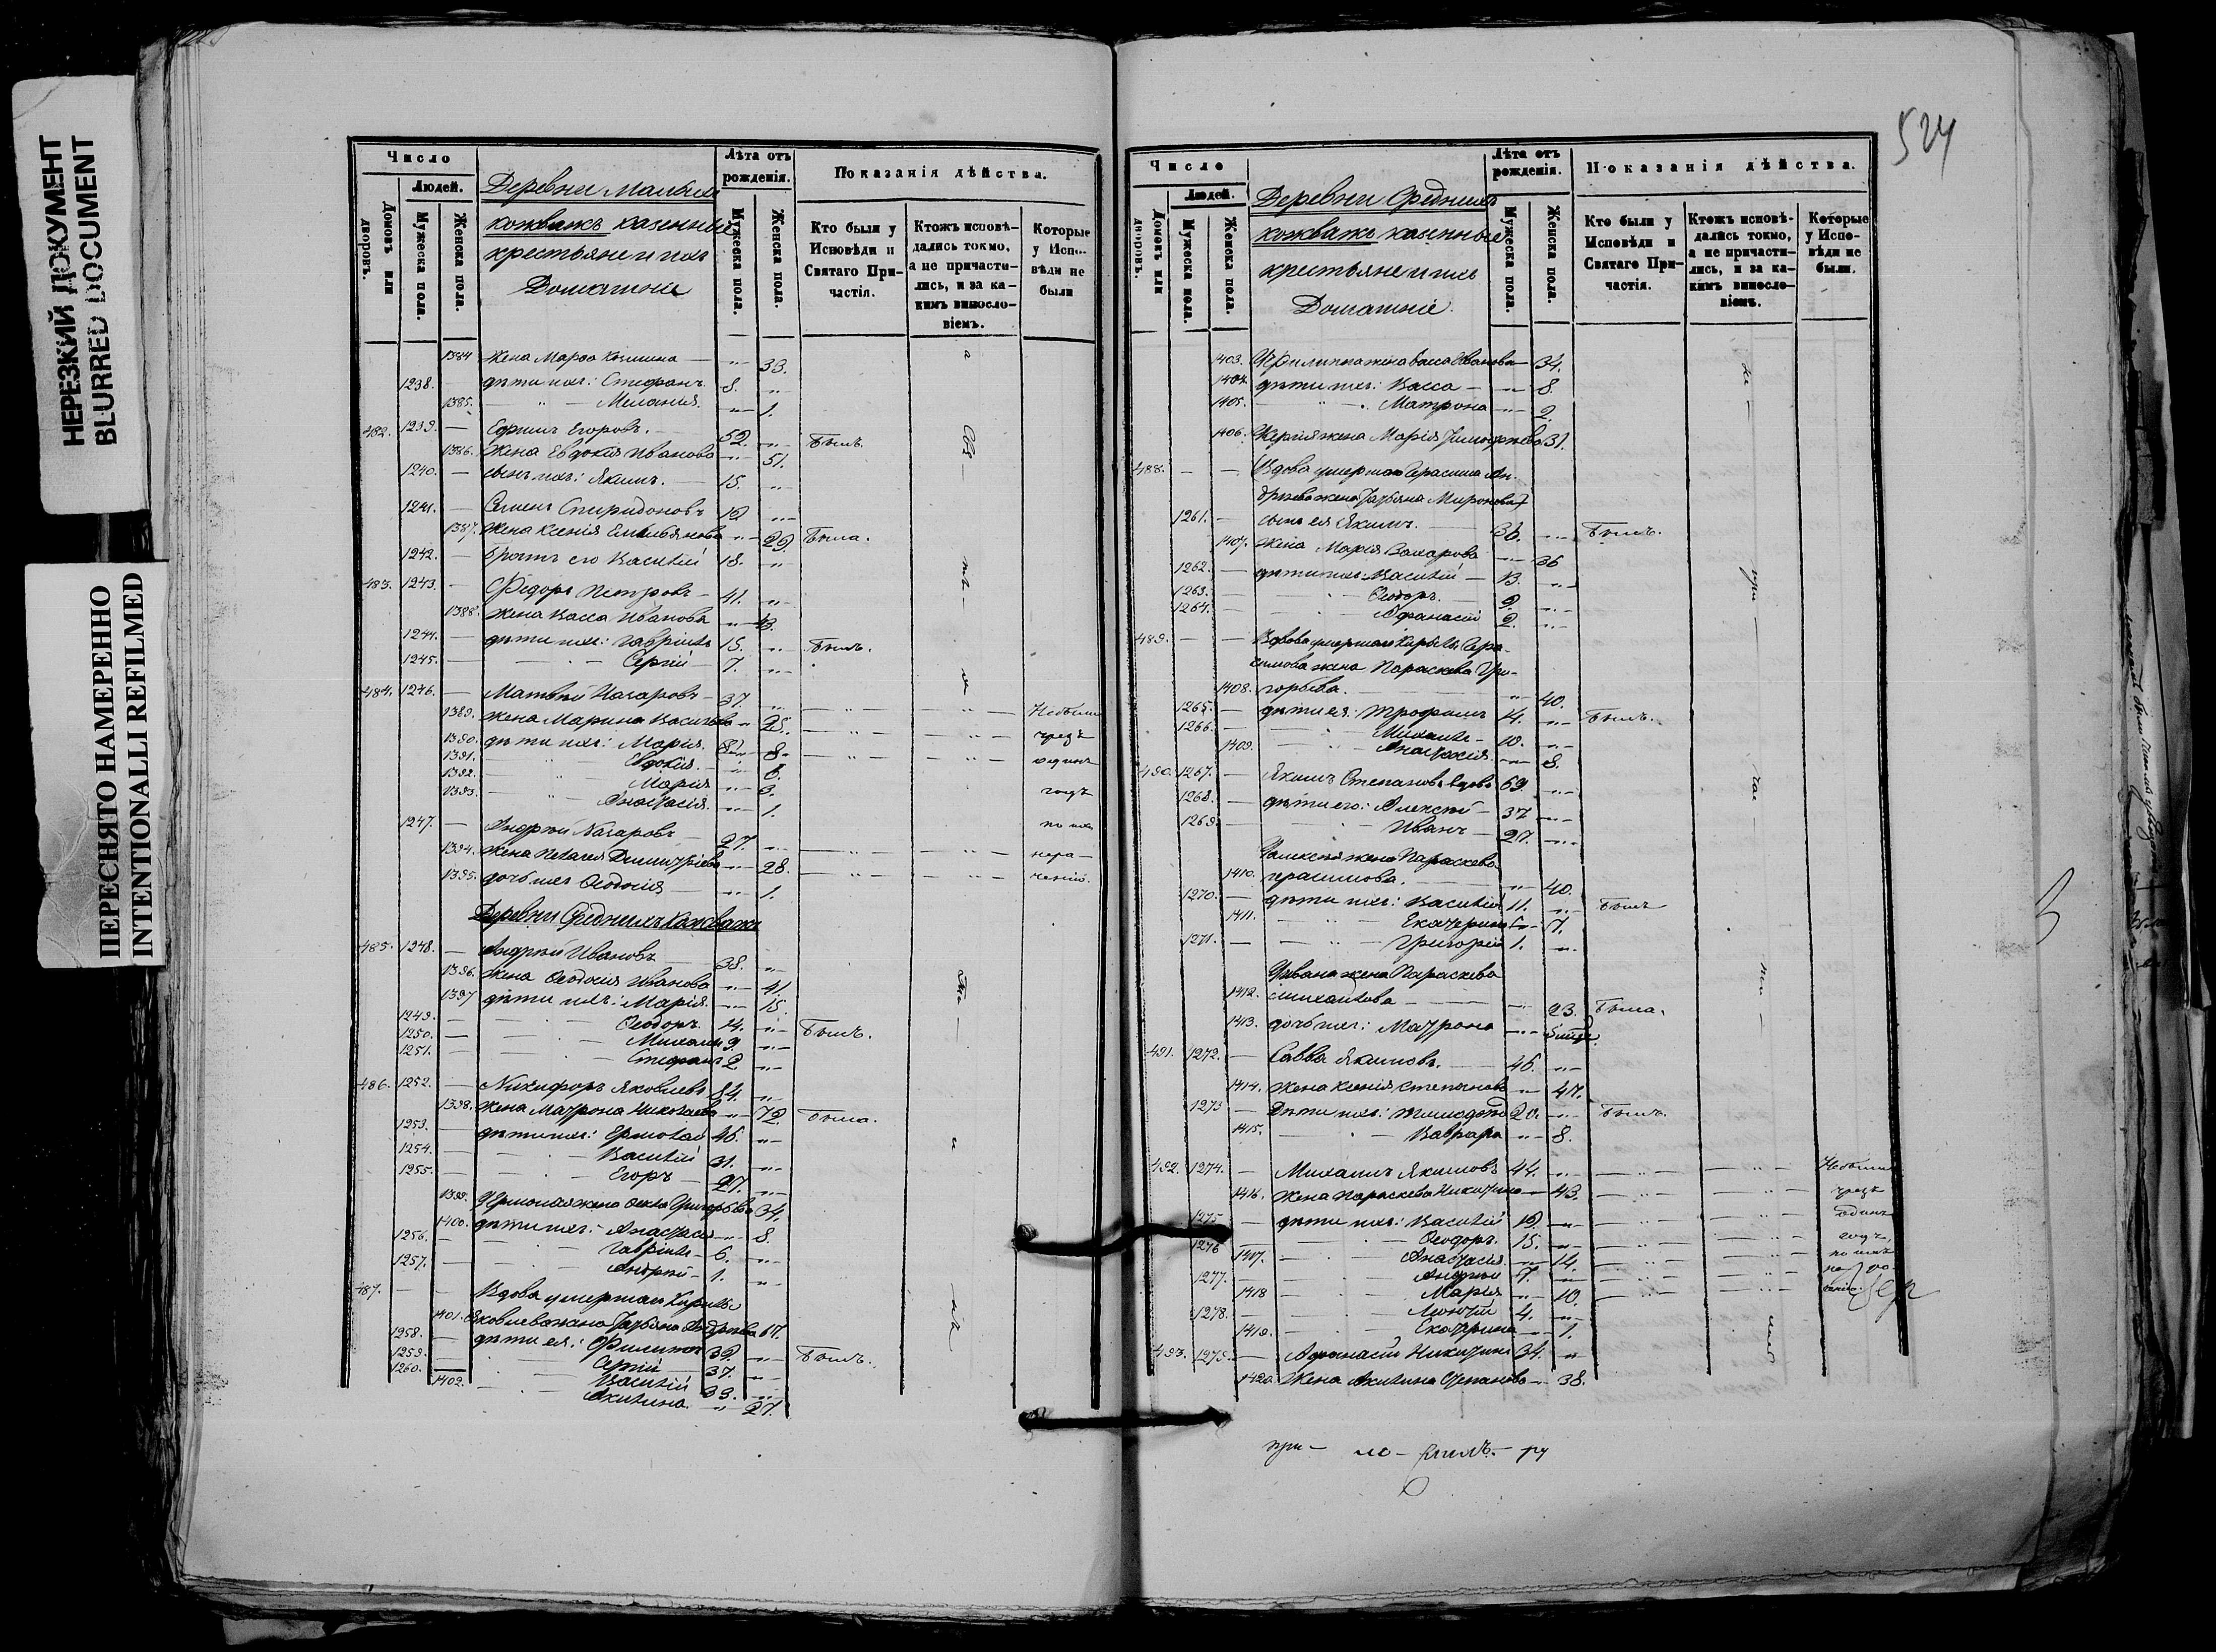 НЕРЕЗКИЙ ДОКУМЕНТ
BLURRED DOCUMENT
ПЕРЕСНЯТО НАМЕРЕННО
INTENTIONALLI REFILMED
Число
Людей.
Домовъ или дворовъ.
Мужеска пола.
Женска пола.
Деревни Малыхъ
кожважъ казенные
крестьяне и ихъ
Домашніе
Лѣта отъ рожденія.
Мужеска пола.
Женска пола.
Показанія дѣйства.
Кто были у Исповѣди и Святаго Причастія.
Ктожъ исповѣдались токмо, а не причастились, и за какимъ винословіемъ.
Которые у Исповѣди не были
1384 Жена Марѳа Козмина — " — 33.
1238. — дѣти ихъ: Стефанъ 8. "
1385. — " — Меланія. — " — 1.
482. 1239. — Ефимъ Егоровъ. — 52. " Былъ.
1386. Жена Евдокія Иванова — " — 51.
1240. — сынъ ихъ: Якимъ. — 15. "
1241. — Семенъ Спиридоновъ 19 "
1387. Жена Ксенія Емельянова — " — 29. Была.
1242. — братъ его Василій 18. "
483. 1243. — Ѳедоръ Петровъ — 41. "
1388. Жена Васса Иванова — " — 43.
1244. — дѣти ихъ: Гавріилъ 15. " Былъ.
1245. — Сергій — 7. "
484. 1246. — Матвѣй Назаровъ — 37. " — " — " — Небыли
1389. Жена Марина Васильева " 28. — " — " — чрезъ
1390. дѣти ихъ: Марія. — 8. — " — " — одинъ
1391. — " — Евдокія. — " — 6.
1392. — " — Марія — " — 3. годъ
1393. — " — Анастасія. — " — 1.
1247. — Андрей Назаровъ 27. " по ихъ
1394. Жена Пелагея Димитріева — " — 28. — " — " — нера-
1395. дочь ихъ Ѳеодосія — " — 1. ченію.
Деревни Среднихъ Кожважъ
485. 1248. — Андрей Ивановъ — 38. "
1396. Жена Ѳеодосія Иванова — " — 41.
1397 дѣти ихъ: Марія. — " — 15.
1249. — Ѳеодоръ. 14. " Былъ.
1250. — Михаилъ 9. "
1251. — Стефанъ 2 "
486. 1252. — Никифоръ Яковлевъ 84. "
1398. Жена Матрона Николаева — " — 72. Была.
1253. — дѣти ихъ: Ермолай 46. "
1254. — Василій 31. "
1255. — Егоръ — 27. "
1399. У Ермолая жена Ѳекла Григорьева 34.
1400. дѣти ихъ: Анастасія — " — 8.
1256. — Гавріилъ — 6. "
1257. — Андрей — 1. "
487. — Вдова умершаго Кирилы
1401. Яковлева жена Татьяна Андреева 67.
1258. — дѣти ея: Филиппъ 39. " Былъ.
1259. — Сергій — 37. "
1260. — Василій 33. "
1402. Акилина. — " — 27.
524
Число
Людей.
Домовъ или дворовъ.
Мужеска пола.
Женска пола.
Деревни Среднихъ
кожважъ казенные
крестьяне и ихъ
Домашніе.
Лѣта отъ рожденія.
Мужеска пола.
Женска пола.
Показанія дѣйства.
Кто были у Исповѣди и Святаго Причастія.
Ктожъ исповѣдались токмо, а не причастились, и за какимъ винословіемъ.
Которые у Исповѣди не были.
1403. У Филиппа жена Васса Иванова — 34.
1404. дѣти ихъ: Васса — " — 8.
1405. — " — Матрона — " — 2.
1406. У Сергія жена Марія Тимофѣева 31.
488. — — Вдова умершаго Герасима Ан-
дреева жена Татьяна Миронова
1261. — сынъ ея Якимъ. — 36. " Былъ.
1407. Жена Марія Захарова — " — 36
1262. — дѣти ихъ Василій — 13. "
1263. — Ѳеодоръ. — 9. "
1264. — Афанасій 2. "
489. — — Вдова умершаго Кирилы Гера-
симова жена Параскева Гри-
1408. горьева. — " — 40.
1265. — дѣти ея: Трофимъ 14. " Былъ.
1266. — Михаилъ — 10. "
1409. — Анастасія. — " — 8.
490. 1267. — Якимъ Степановъ вдовъ 69 "
1268. — дѣти его: Алексѣй — 37 "
1269. — Иванъ — 27. "
У Алексѣя жена Параскева
1410. Герасимова. — " — 40.
1270. — дѣти ихъ: Василій 11. " Былъ
1411. — " — Екатерина — 7.
1271. — " — Григорій 1. "
У Ивана жена Параскева
1412. Михаилова — " — 23. Была.
1413. дочь ихъ: Матрона — "
491. 1272. — Савва Якимовъ. 46. "
1414. Жена Ксенія Степанова — " — 47.
1273 — Дѣти ихъ: Тимофей 20. " Былъ.
1415. — Варвара — " — 8.
492. 1274. — Михаилъ Якимовъ 44. " — " — " — Небыли
1416. Жена Параскева Никитина — 43. — " — " — чрезъ
1275 — дѣти ихъ: Василій 19. " — " — " — одинъ
1276 — Ѳеодоръ. 15. " — " — " — годъ,
1417. — Анастасія. — " — 14. — " — " — по ихъ
1277. — Андрей 7. " — " — " —
1418 — Марія — " — 10. — " — " —
1278. — 4. "
1419. — Екатерина — " — 1.
493. 1279. — Афанасій Никитинъ 34. "
1420. Жена Акилина Степанова — 38.